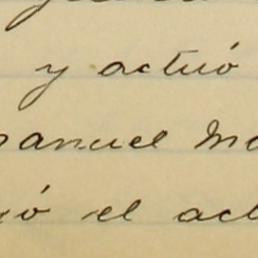 y actuó
anuel Ma
ó el act